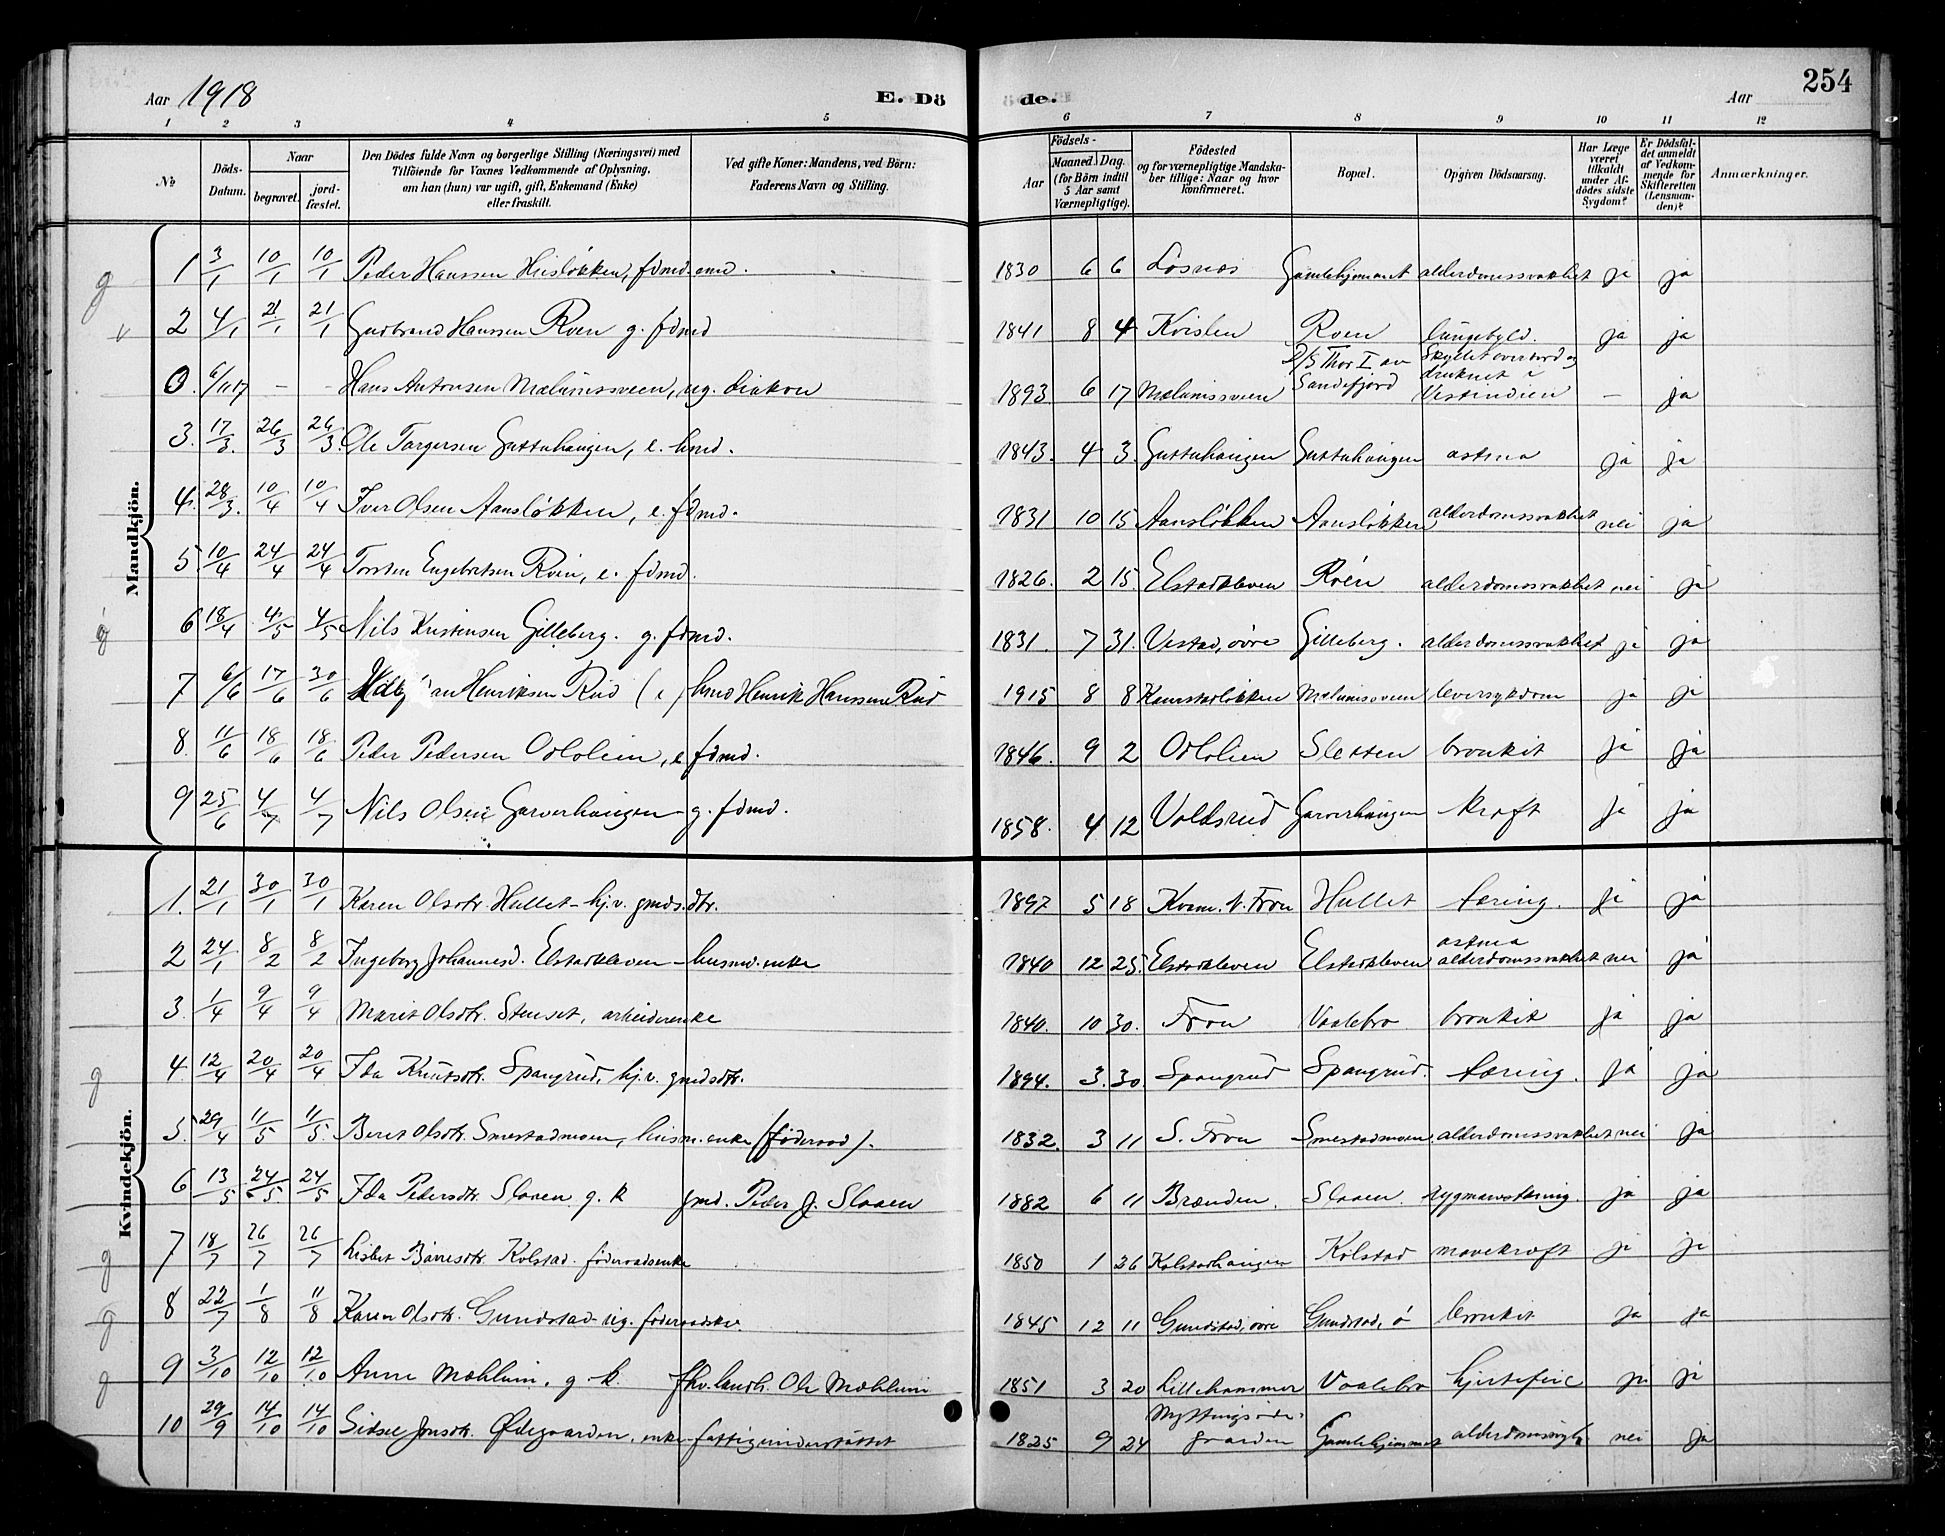 Aar 1918 E. Dö de. Aar 254
1 2 3 4 5 6 7 8 9 10 11 12
No Döds-Datum. Naar begravet. jord-fæstet. Den Dödes fulde Navn og borgerlige Stilling (Næringsvei) med Tilföiende for Voxnes Vedkommende af Oplysning, om han (hun) var ugift, gift, Enkemand (Enke) eller fraskilt. Ved gifte Koner: Mandens, ved Börn: Faderens Navn og Stilling. Födsels- Aar Maaned. Dag. (for Börn indtil 5 Aar samt Værnepligtige). Födested og for værnepligtige Mandskaber tillige: Naar og hvor konfirmeret. Bopæl. Opgiven Dödsaarsag. Har Læge været tilkaldt under Afdödes sidste Sygdom? Er Dödsfaldet anmeldt af Vedkommende for Skifteretten (Lensmanden)? Anmærkninger.
Mandkjön.
1 3/1 10/1 10/1 Peder Hanssen Husløkken, fdmd. emd. 1830 6 6 Losnæs Gamlehjemmet alderdomssvakhet ja ja
2 4/1 21/1 21/1 Gudbrand Hanssen Roen g. fdmd 1841 8 4 Kvislen Roen lungebyld. ja ja
0. 6/11 17 - - Hans Antonsen Mælumsveen, ug. diakon 1893 6 17 Mælumsveen D/S Thor I av Sandefjord Skyllet overbord og druknet i Vestindien - ja
3. 17/3. 26/3 26/3. Ole Torgersen Guttuhaugen, e. hmd. 1843. 4 3. Guttuhaugen Guttuhaugen astma ja ja
4. 28/3. 10/4 10/4 Iver Olsen Aansløkken, e. fdmd. 1831 10 15 Aansløkken Aansløkken alderdomssvakhet nei ja
5. 10/4 24/4 24/4 Torsten Engebretsen Roen, e. fdmd. 1826. 2 15. Elstadkleven Roen alderdomssvakhet nei ja
6 18/4 4/5 4/5 Nils Kristensen Gilleberg. g. fdmd. 1831. 7 31. Vestad, øvre Gilleberg. alderdomssvakhet ja ja
7 6/6 17/6 30/6 Henriksen Rud hmd Henrik Hanssen Rud 1915 8 8 Kanstadløkken Mælumsveen leversykdom ja ja
8. 11/6 18/6 18/6 Peder Pedersen Odlolien, e fdmd. 1846. 9 2 Odlolien Sletten bronkit ja ja
9 25/6 4/7 4/7 Nils Olsen Garverhaugen g. fdmd. 1858. 4 12 Voldsrud Garverhaugen kræft ja ja
Kvindekjön.
1. 21/1 30/1 30/1 Karen Olsdtr. Hullet - hj.v. gmds.dtr. 1897 5 18 Kvam. N. Fron Hullet tæring. ja ja
2 24/1 8/2 8/2 Ingeborg Johannesd. Elstadkleven - husmd.enke 1840 12 25. Elstadkleven Elstadkleven astma alderdomssvakhet nei ja
3. 1/4 9/4 9/4 Marit Olsdtr. Stenset, arbeiderenke 1840. 10 30. Fron Vaalebro bronkit ja ja
4. 12/4 20/4 20/4 Ida Knutsdtr. Spangrud, hj.v. gmdsdtr. 1894. 3. 30 Spangrud Spangrud. tæring. ja ja
5. 29/4 11/5 11/5. Berit Olsdtr. Smestadmoen, husm.enke (føderaad). 1832. 3 11 S. Fron Smestadmoen. alderdomssvakhet nei ja
6 13/5 24/5 24/5 Ida Pedersdtr. Slaaen g. k gmd. Peder J. Slaaen 1882 6 11 Brænden. Slaaen. rygmarvstæring. ja ja
7 18/7 26/7 26/7 Lisbet Baaresdtr. Kolstad. føderaadsenke 1850 1 26 Kolstadhaugen Kolstad mavekræft ja ja
8 22/7 1/8 11/8 Karen Olsdtr. Gundstad - ug. føderaadske. 1845 12 11 Gundstad, øvre Gundstad, ø bronkit ja ja
9 3/10 12/10 12/10 Anne Mæhlum, g. k. fhv. landh. Ole Mæhlum 1851 3 20 Lillehammer Vaalebro hjertefeil ja ja
10 29/9 14/10 14/10 Sidsel Jonsdtr. Ødegaarden, enke - fattigunderstøttet 1825 9 24 Myttingsødegaarden Gamlehjemmet nei ja